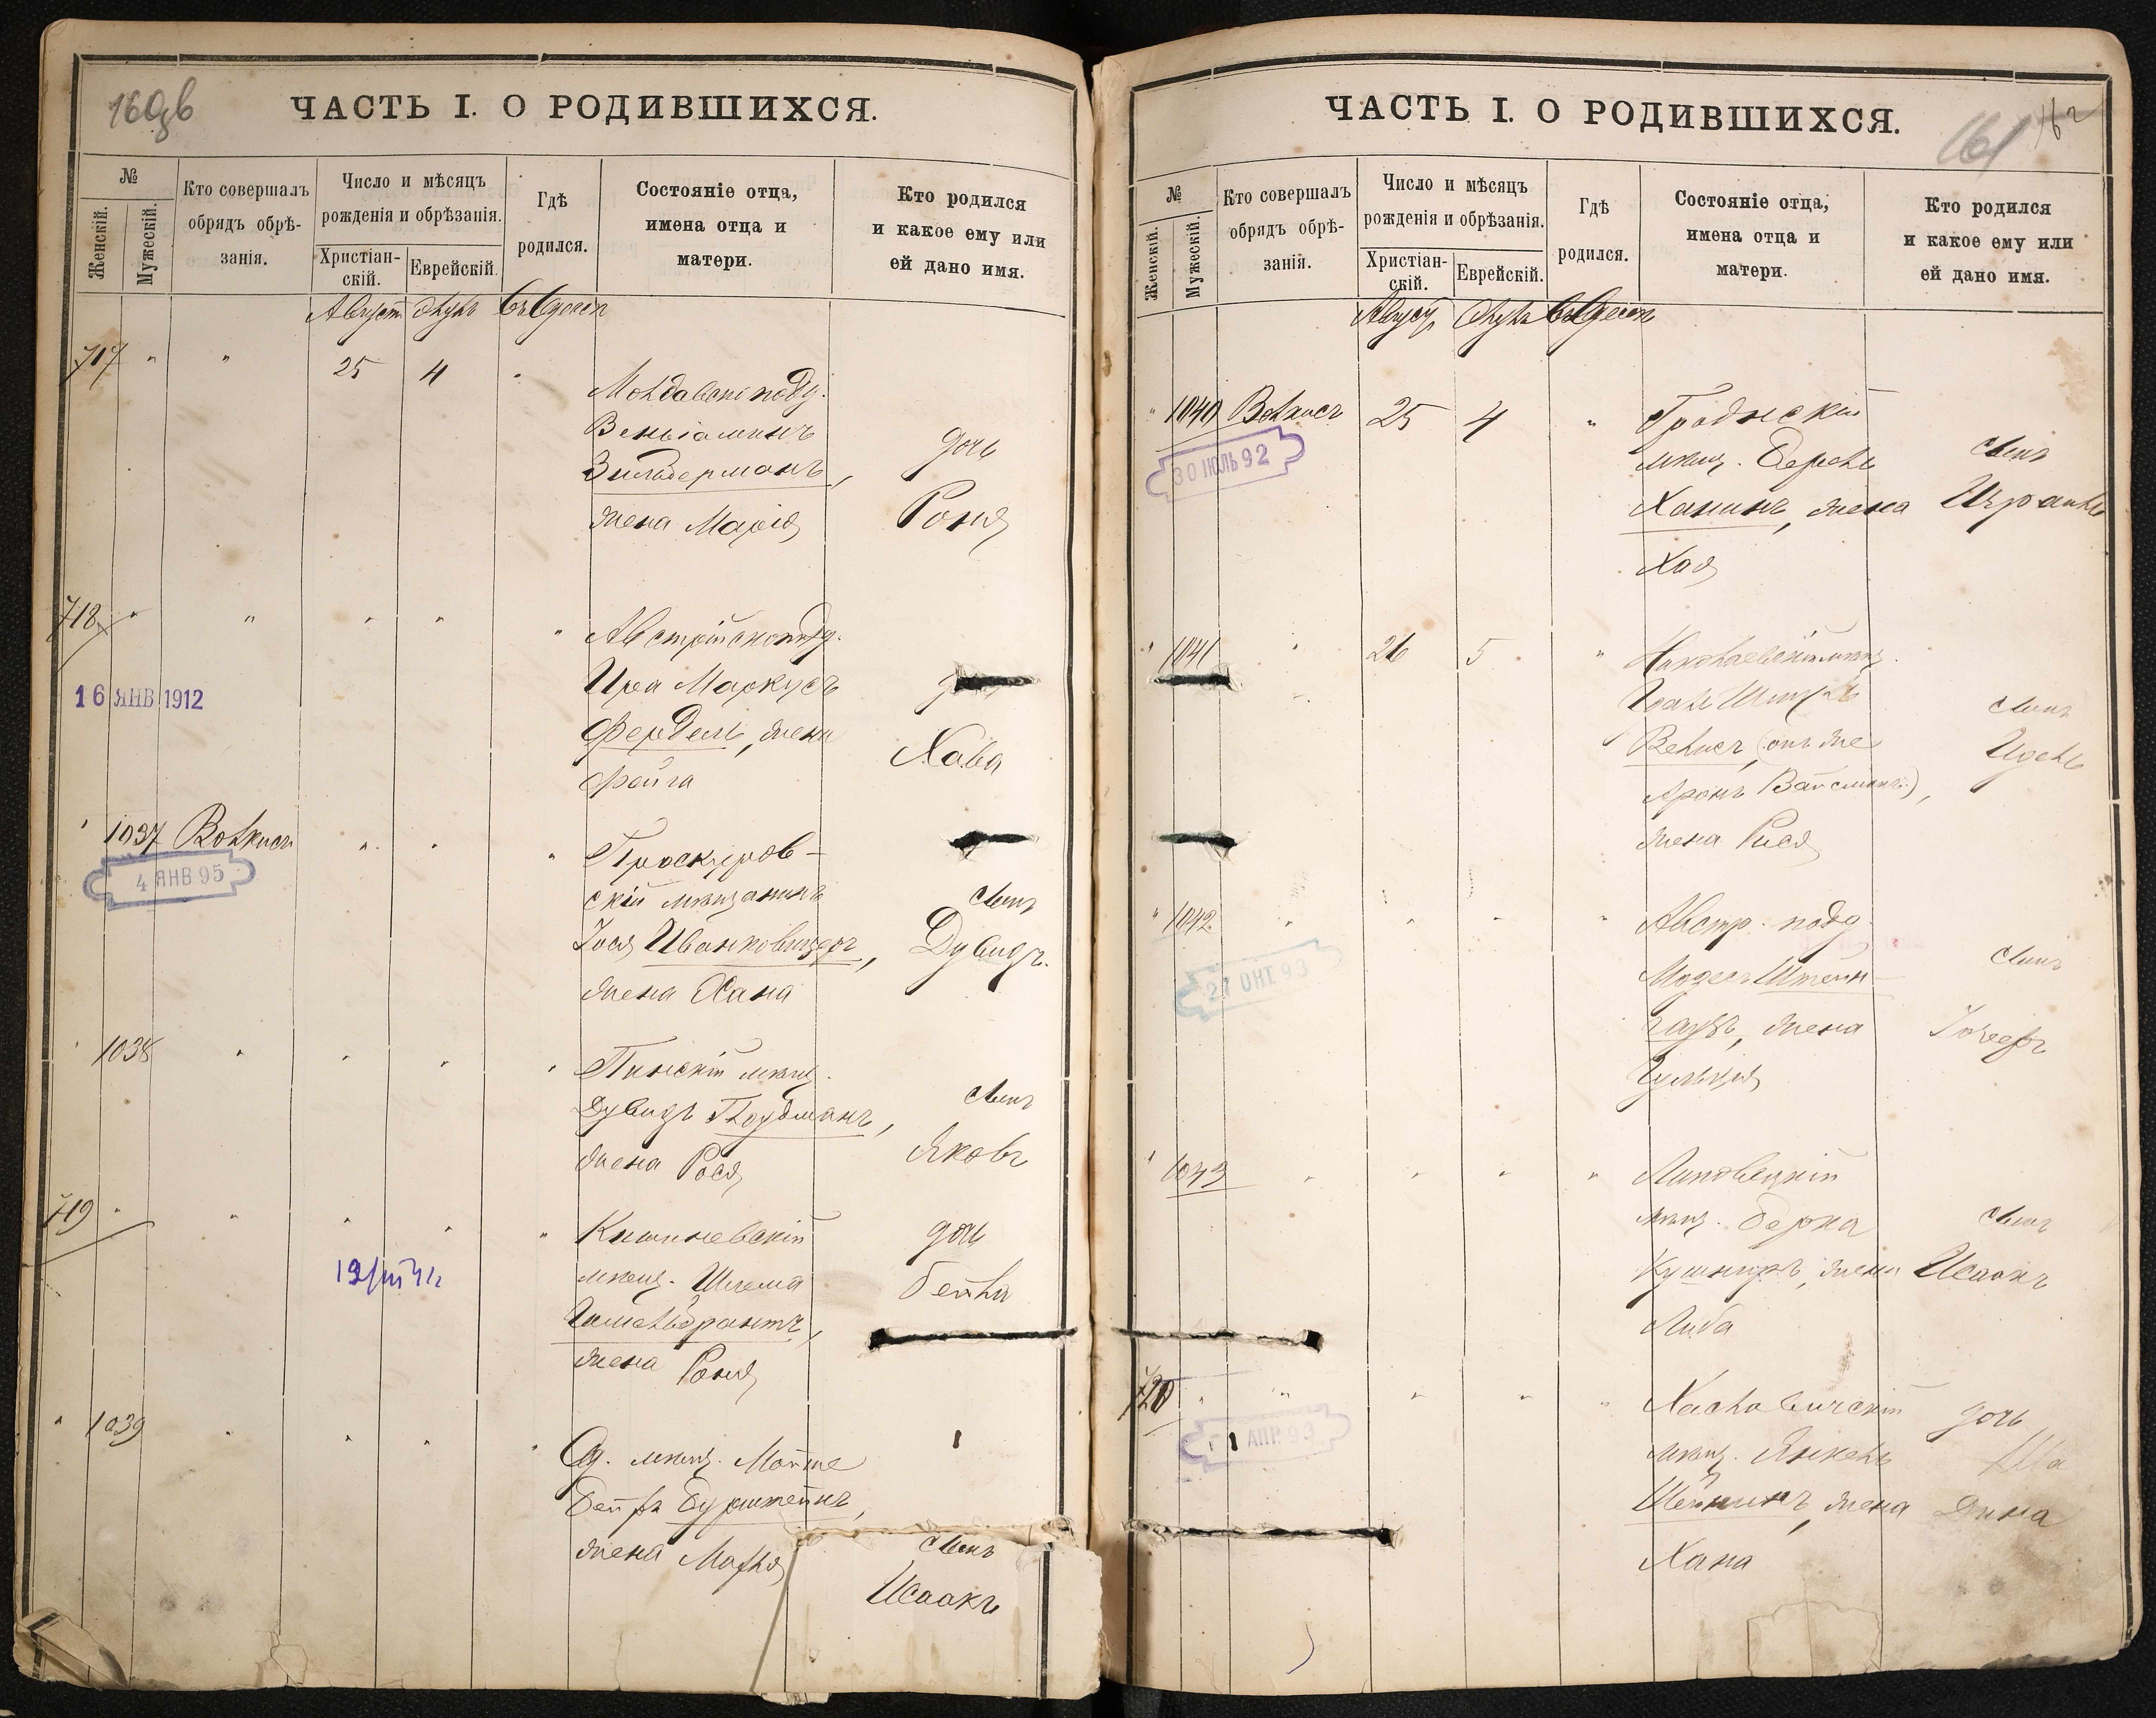 160 об
ЧАСТЬ I. О РОДИВШИХСЯ.
№
Женскій.
Мужескій.
Кто совершалъ
обрядъ обрѣ-
занія.
Число и мѣсяцъ
рожденія и обрѣзанія.
Христіан-
скій.
Еврейскій.
Гдѣ
родился.
Состояніе отца,
имена отца и
матери.
Кто родился
и какое ему или
ей дано имя.
Август Элулъ въ Одессѣ
717 " " 25 4 "
Молдавскі подд.
Веньіаминъ
Зильберманъ,
жена Марія
дочь
Роня
718 " " " " "
16 ЯНВ 1912
Австрійскоподд.
Маркусъ
жена
Фейга
Хава
" 1037 Волкисъ " " "
4 ЯНВ 95
Проскуров-
скій мѣщанинъ
Іося Иванковицеръ,
жена Хана
сынъ
Дувидъ.
" 1038 " " " "
Пинскій мѣщ.
Дувидъ
жена Рося
сынъ
Яковъ
719 " " " " "
Кишиневскій
мѣщ. Шлема
жена Роня
дочь
Бейла
" 1039 " " " "
Од. мѣщ.
Бурштейнъ,
жена
сынъ
Исаакъ
ЧАСТЬ I. О РОДИВШИХСЯ.
161
№
Женскій.
Мужескій.
Кто совершалъ
обрядъ обрѣ-
занія.
Число и мѣсяцъ
рожденія и обрѣзанія.
Христіан-
скій.
Еврейскій.
Гдѣ
родился.
Состояніе отца,
имена отца и
матери.
Кто родился
и какое ему или
ей дано имя.
Август Элулъ въ Одессѣ
" 1040 Волкисъ 25 4 "
30 ІЮЛЬ 92
Гроднскій
мѣщ. Берель
Ханинъ, жена
Хая
сынъ
Израиль
" 1041 " 26 5 "
Николаевскій мѣщ.
(онъ же
Аронъ Вайсманъ),
жена Рися
сынъ
Идель
" 1042 " " " "
27 ОКТ 93
Австр. подд.
Мозесъ Штейн-
жена
сынъ
Іозефъ
" 1043 " " " "
Липовецкій
мѣщ. Берка
Кушниръ, жена
Либа
сынъ
Исаакъ
720 " " " " "
АПР 93
Хаславичскій
мѣщ. Янкель
Шейнинъ, жена
Хана
дочь
Дина